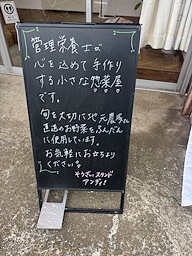 管理栄養士が
心を込めて手作り
する小さな惣菜屋
です。
旬を大切に地元農家さん
直送のお野菜をふんだん
に使用しています。
お気軽にお立ちより
くださいな
そうざいスタンド
アンディ!